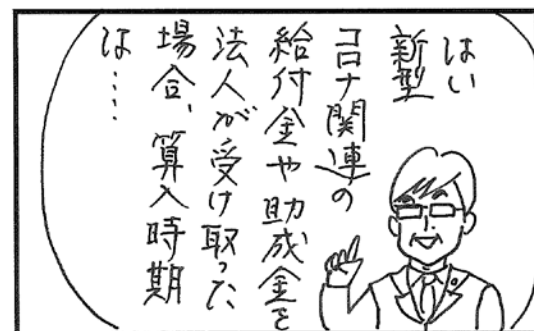 はい
新型
コロナ関連の
給付金や助成金を
法人が受け取った
場合、算入時期
は……